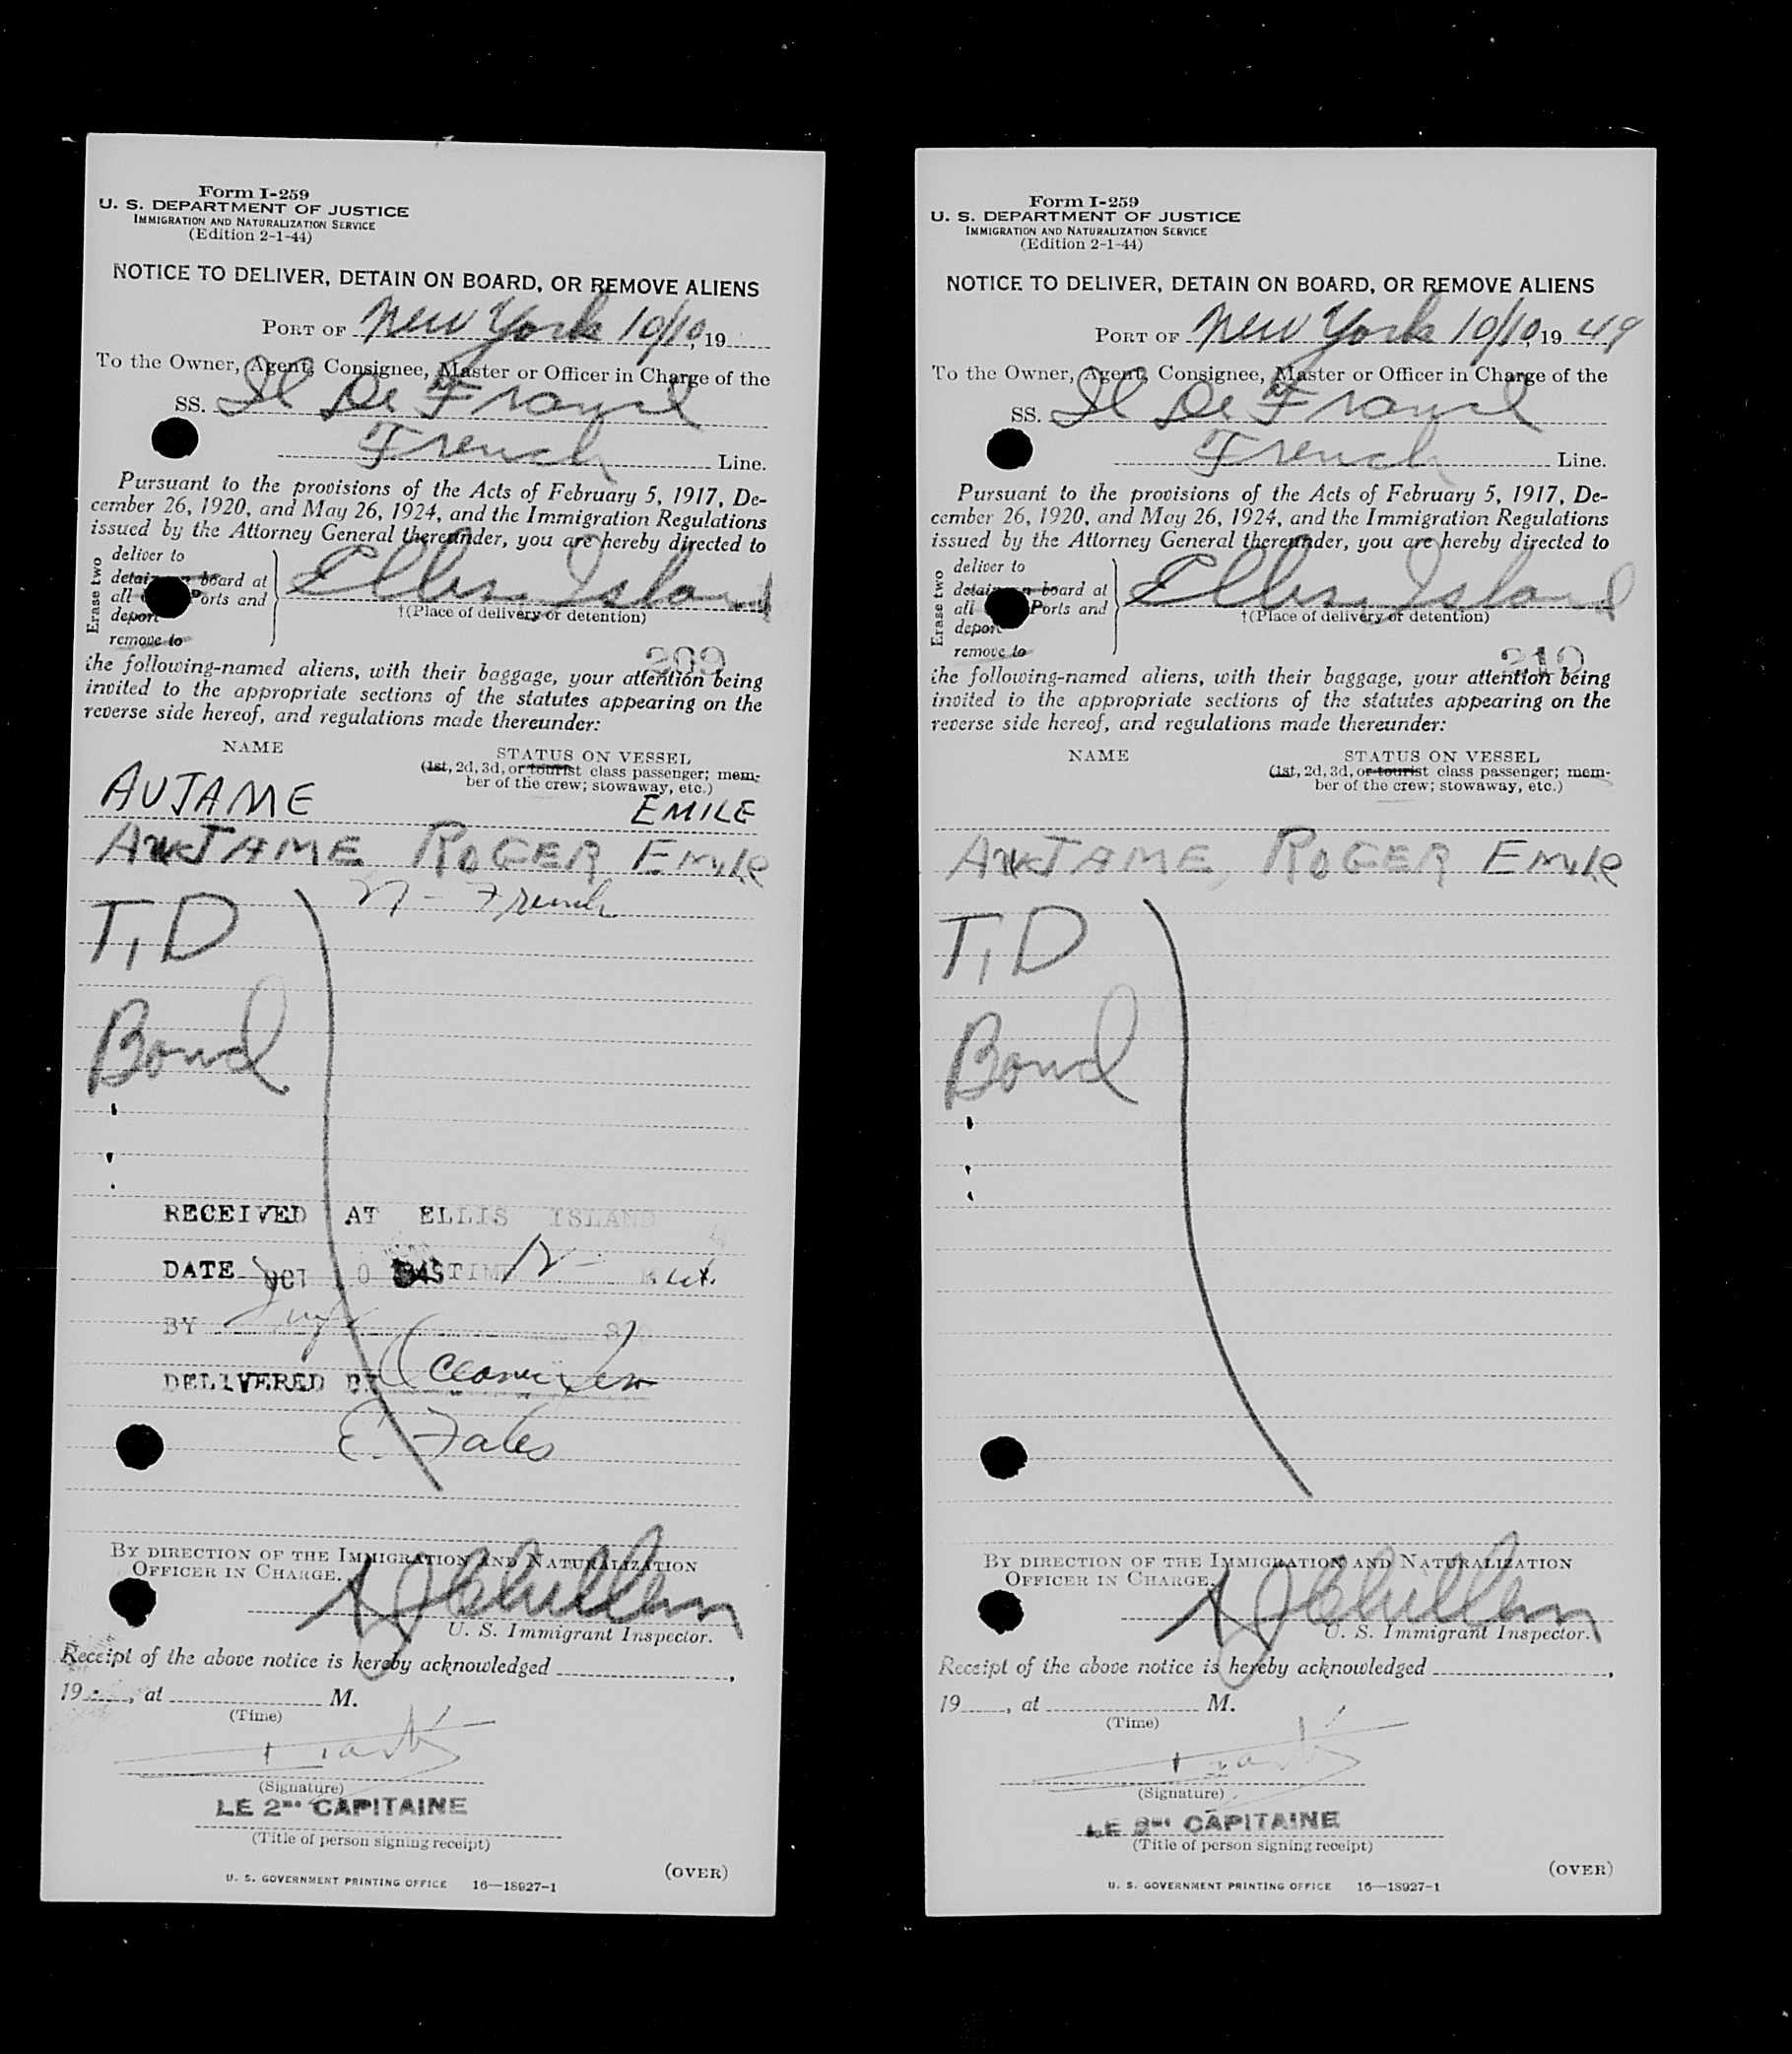 Form I-259
U. S. DEPARTMENT OF JUSTICE
IMMIGRATION AND NATURALIZATION SERVICE
(Edition 2-1-44)
NOTICE TO DELIVER, DETAIN ON BOARD, OR REMOVE ALIENS
PORT OF New York 10/10, 19
To the Owner, Agent, Consignee, Master or Officer in Charge of the
SS. Il De France
French Line.
Pursuant to the provisions of the Acts of February 5, 1917, De-
cember 26, 1920, and May 26, 1924, and the Immigration Regulations
issued by the Attorney General thereunder, you are hereby directed to
Erase two
deliver to
detain on board at
all Ports and
deport
remove to
Ellis Island
†(Place of delivery or detention)
209
the following-named aliens, with their baggage, your attention being
invited to the appropriate sections of the statutes appearing on the
reverse side hereof, and regulations made thereunder:
NAME
STATUS ON VESSEL
(1st, 2d, 3d, or tourist class passenger; mem-
ber of the crew; stowaway, etc.)
AUJAME EMILE
AUJAME ROGER EMile
n - French
T, D
Bond
RECEIVED AT ELLIS ISLAND
DATE OCT 10 1949 TIME 12
BY
DELIVERED BY
E. Fales
BY DIRECTION OF THE IMMIGRATION AND NATURALIZATION
OFFICER IN CHARGE.
U. S. Immigrant Inspector.
Receipt of the above notice is hereby acknowledged
19 , at M.
(Time)
(Signature)
LE 2me CAPITAINE
(Title of person signing receipt)
(OVER)
U. S. GOVERNMENT PRINTING OFFICE 16—18927-1
Form I-259
U. S. DEPARTMENT OF JUSTICE
IMMIGRATION AND NATURALIZATION SERVICE
(Edition 2-1-44)
NOTICE TO DELIVER, DETAIN ON BOARD, OR REMOVE ALIENS
PORT OF New York 10/10, 19 49
To the Owner, Agent, Consignee, Master or Officer in Charge of the
SS. Il De France
French Line.
Pursuant to the provisions of the Acts of February 5, 1917, De-
cember 26, 1920, and May 26, 1924, and the Immigration Regulations
issued by the Attorney General thereunder, you are hereby directed to
Erase two
deliver to
detain on board at
all Ports and
deport
remove to
Ellis Island
†(Place of delivery or detention)
210
the following-named aliens, with their baggage, your attention being
invited to the appropriate sections of the statutes appearing on the
reverse side hereof, and regulations made thereunder:
NAME
STATUS ON VESSEL
(1st, 2d, 3d, or tourist class passenger; mem-
ber of the crew; stowaway, etc.)
AUJAME, ROGER EMile
T, D
Bond
BY DIRECTION OF THE IMMIGRATION AND NATURALIZATION
OFFICER IN CHARGE.
U. S. Immigrant Inspector.
Receipt of the above notice is hereby acknowledged
19 , at M.
(Time)
(Signature)
LE 2me CAPITAINE
(Title of person signing receipt)
(OVER)
U. S. GOVERNMENT PRINTING OFFICE 16—18927-1